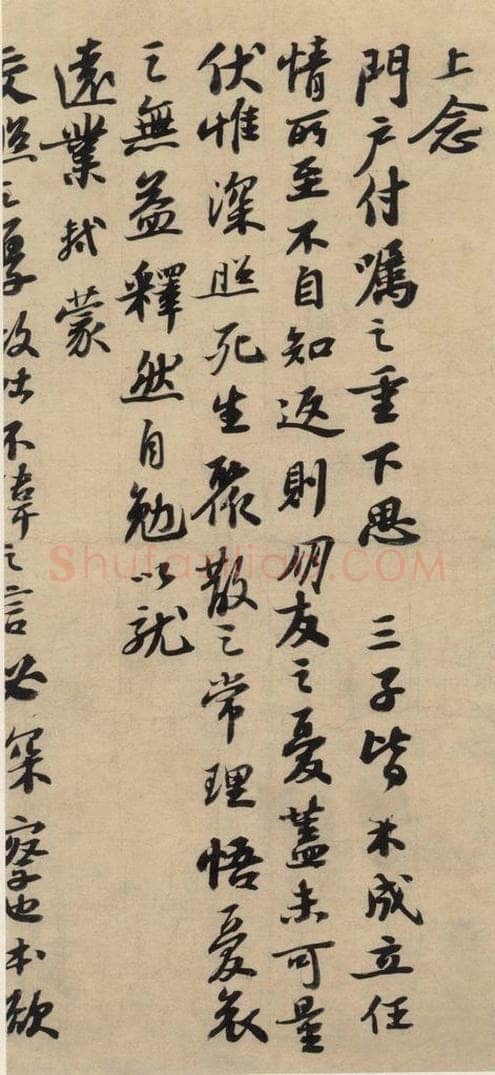 上念
門戶付囑之重下思 三子皆未成立任
情所至不自知返則朋友之憂蓋未可量
伏惟深照死生聚散之常理悟憂哀
之無益釋然自勉以就
遠業軾蒙
交照之厚故吐不諱之言必深察也本欲